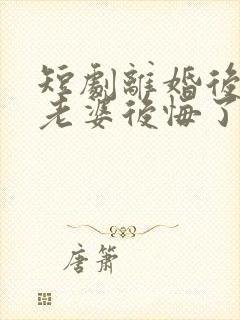 短劇離婚後
老婆後悔了
唐簫